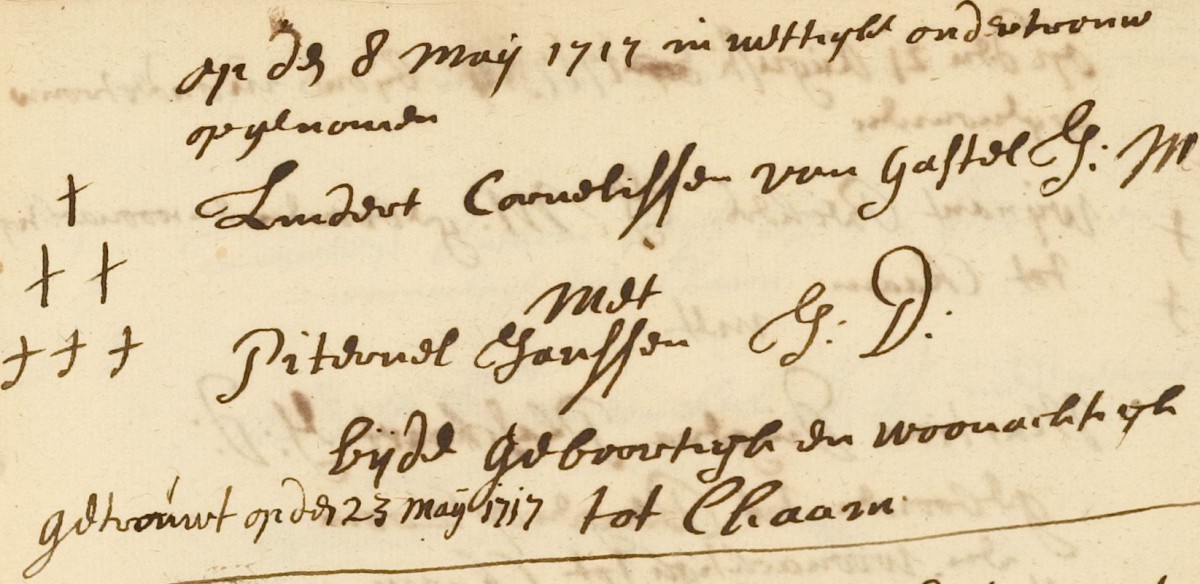 op den 8 Maÿ 1717 in wettigke ondertrouw
opgenomen
† Lindert Cornelissen van Gastel J: M
† †
met
† † † Piternel Janssen J: D:
bijde geboortigh en woonachtigh
getrouwt op den 23 maÿ 1717 tot Chaam